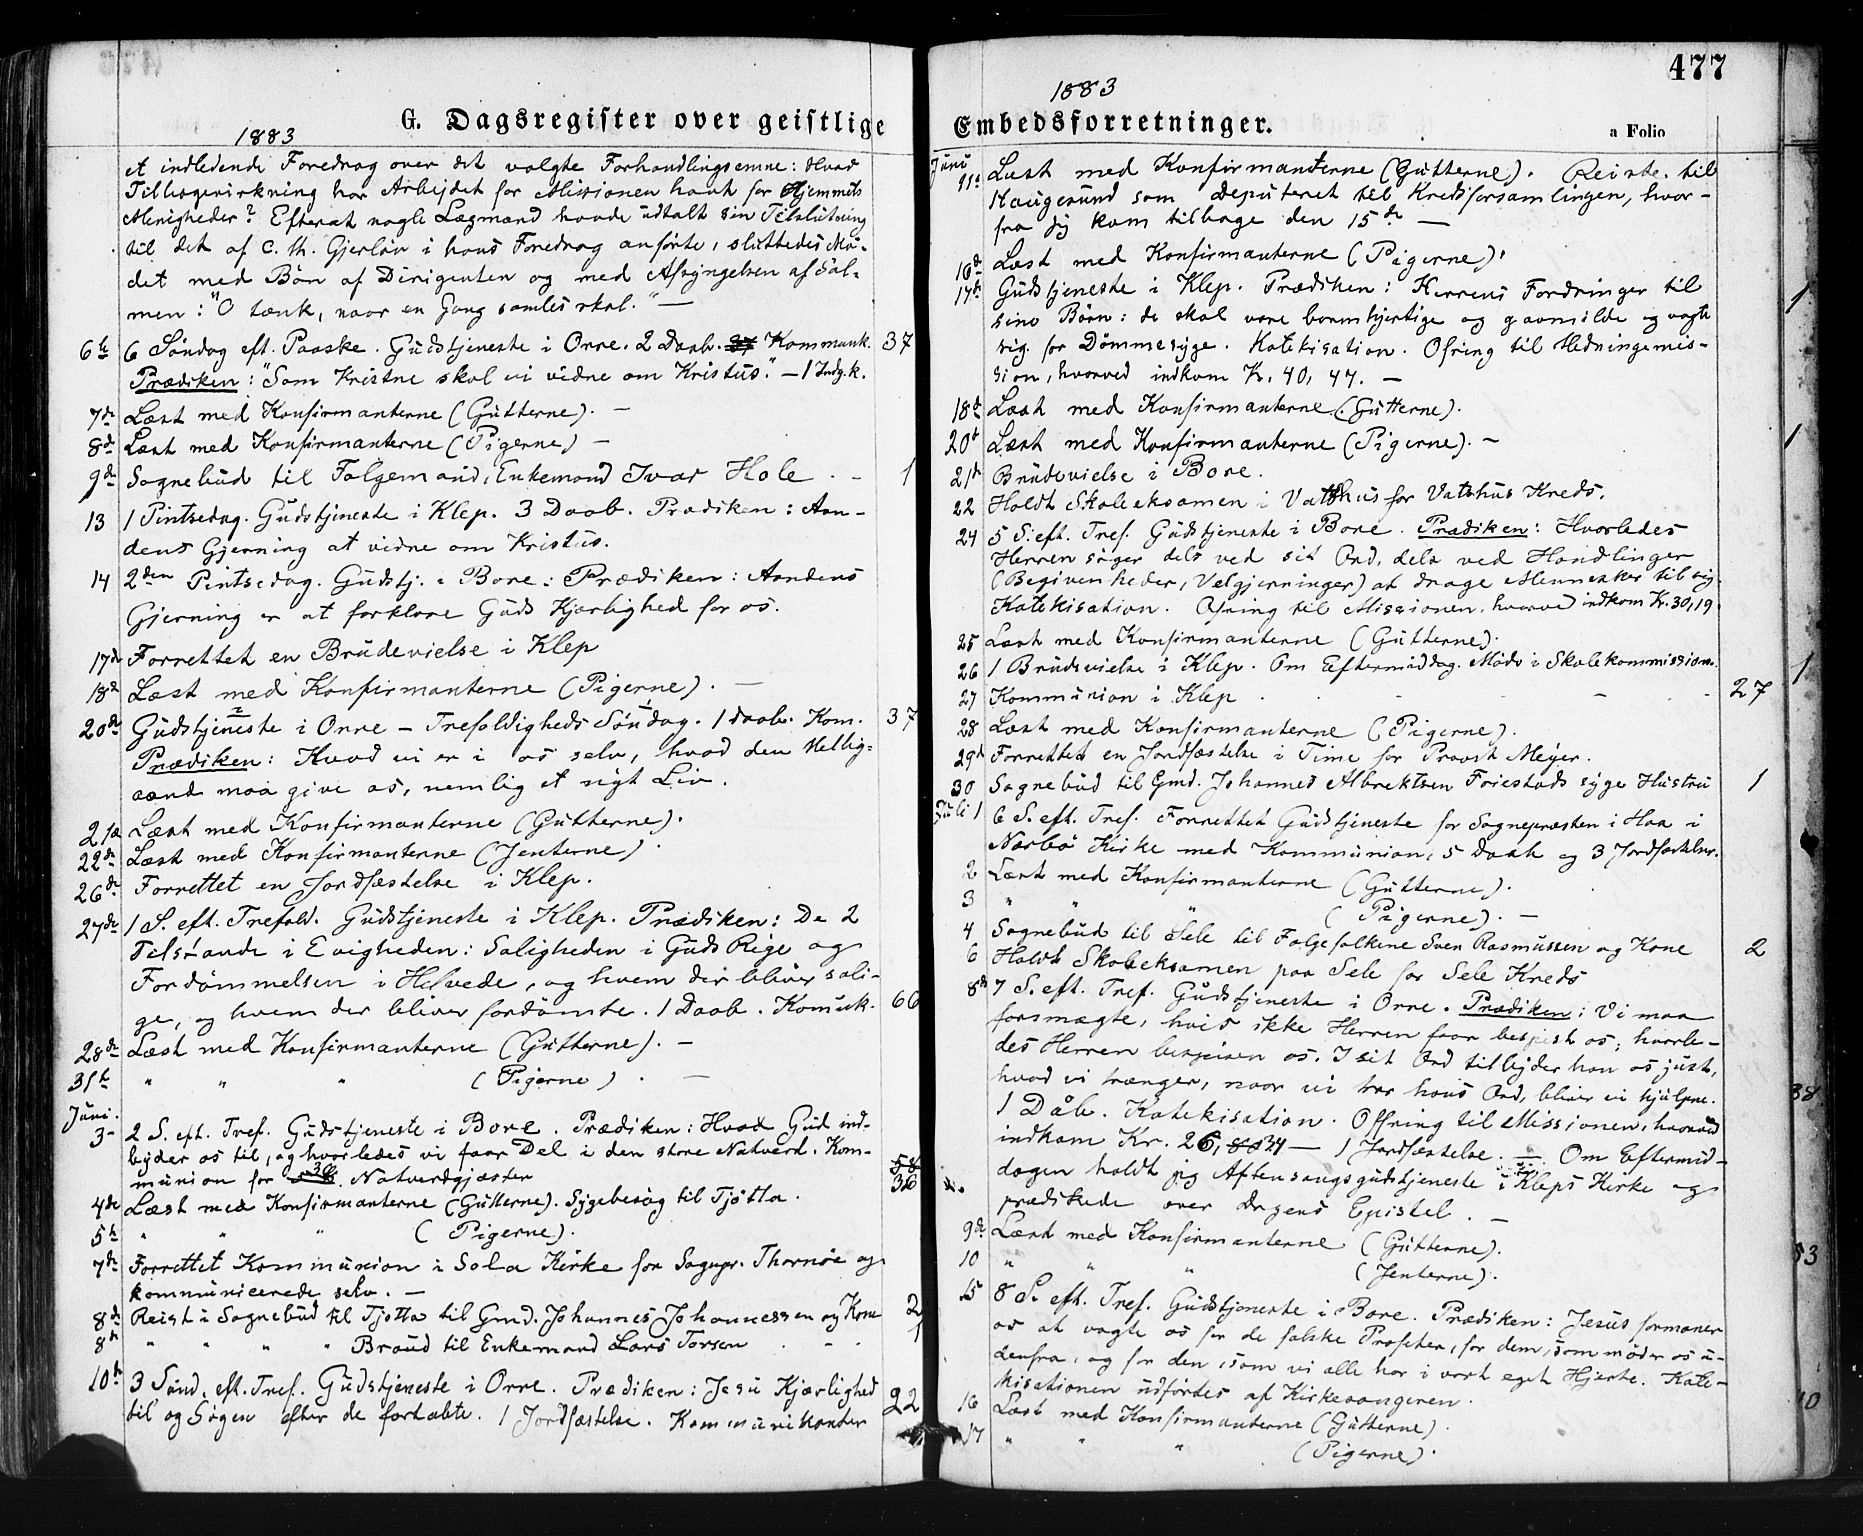 1883
G. Dagsregister over geistlige
et indledende Foredrag over det valgte Forhandlingsemne: Hvad
Tilbagevirkning har Arbejdet for Missionen havt for Hjemmets
Menigheder? Efterat nogle Lægmænd havde udtalt sin Tilslutning
til det af C. Th. Gjerløv i hans Foredrag anførte, sluttedes Mö-
det med Bön af Dirigenten og med Afsyngelsen af Sal-
men: "O tænk, naar en Gang samles skal." —
6te 6 Söndag eft. Paaske. Gudstjeneste i Orre. 2 Daab. 37 Kommunk. 37
Prædiken: "Som Kristne skal vi vidne om Kristus." — 1 Indg.k.
7de Læst med Konfirmanterne (Gutterne). —
8de Læst med Konfirmanterne (Pigerne) —
9de Sognebud til Folgemand, Enkemand Ivar Hole . - 1
13 1 Pintsedag. Gudstjeneste i Klep. 3 Daab. Prædiken: Aan-
dens Gjerning at vidne om Kristus.
14 2den Pintsedag. Gudstj. i Bore: Prædiken: Aandens
Gjerning er at forklare Guds Kjærlighed for os.
17de Forrettet en Brudevielse i Klep
18de Læst med Konfirmanterne (Pigerne). —
20de Gudstjeneste i Orre - Trefoldigheds Söndag. 1 Daab. Kom. 37
Prædiken: Hvad vi er i os selv, hvad den Hellig-
aand maa give os, nemlig et nyt Liv.
21de Læst med Konfirmanterne (Gutterne).
22de Læst med Konfirmanterne (Jenterne).
26de Forrettet en Jordfæstelse i Klep.
27de 1 S. eft. Trefold. Gudstjeneste i Klep. Prædiken: De 2
Tilstande i Evigheden: Saligheden i Guds Rige og
Fordömmelsen i Helvede, og hvem der bliver sali-
ge, og hvem der bliver fordömte. 1 Daab. Komuk. 66
28de Læst med Konfirmanterne (Gutterne). —
31te " " " (Pigerne) . —
Juni.
3- 2 S. eft. Tref. Gudstjeneste i Bore. Prædiken: Hvad Gud ind-
byder os til, og hvorledes vi faar Del i den store Natverd. Kom-
munion for 36. Natverdgjæster 36
4de Læst med Konfirmanterne (Gutterne). Sygebesög til Tjötta.
5te " " " (Pigerne).
7de Forrettet Kommunion i Sola Kirke for Sognpr. Thornöe og
kommunicerede selv. —
8de Reist i Sognebud til Tjotta til Gmd. Johannes Johannessen og Kone 2
8de " " " " Braud til Enkemand Lars Torsen . - . 1
10de 3 Sönd. eft. Tref. Gudstjeneste i Orre. Prædiken: Jesu Kjærlighed
til og Sögen efter de fortabte. 1 Jordfæstelse. Kommunikanter 22
477
1883
Embedsforretninger.
a Folio
Juni
11te Læst med Konfirmanterne (Gutterne). Reiste til
Haugesund som Deputeret til Kredsforsamlingen, hvor-
fra jeg kom tilbage den 15de —
16de Læst med Konfirmanterne (Pigerne).
17de Gudstjeneste i Klep. Prædiken: Herrens Fordringer til
sine Börn: de skal være barmhjertige og gavmilde og vogte
sig for Dömmesyge. Katekisation. Ofring til Hedningemis-
sion, hvorved indkom Kr. 40, 47. —
18de Læst med Konfirmanterne (Gutterne).
20de Læst med Konfirmanterne (Pigerne). —
21de Brudevielse i Bore.
22 Holdt Skoleeksamen i Vatshus for Vatshus Kreds.
24 5 S. eft. Tref. Gudstjeneste i Bore. Prædiken: Hvorledes
Herren söger dels ved sit Ord, dels ved Handlinger
(Begivenheder, Velgjerninger) at drage Mennesker til sig.
Katekisation. Ofring til Missionen, hvorved indkom Kr. 30, 19
25 Læst med Konfirmanterne (Gutterne).
26 1 Brudevielse i Klep. Om Eftermiddag. Möde i Skolekommission.
27 Kommunion i Klep . - - - . 27
28 Læst med Konfirmanterne (Pigerne).
29de Forrettet en Jordfæstelse i Time for Provst Meyer.
30 Sognebud til Gmd. Johannes Albrektsen Friestads syge Hustru 1
Juli 1 6 S. eft. Tref. Forrettet Gudstjeneste for Sognepræsten i Haa i
Nærbö Kirke med Kommunion, 5 Daab og 3 Jordfæstelser.
2 Læst med Konfirmanterne (Gutterne).
3 " " " (Pigerne). —
4 Sognebud til Sele til Folgefolkene Sven Rasmussen og Kone 2
6 Holdt Skoleeksamen paa Sele for Sele Kreds
8de 7 S. eft. Tref. Gudstjeneste i Orre. Prædiken: Vi maa
forsmægte, hvis ikke Herren faar bespist os; hvorle-
des Herren bespiser os. I sit Ord tilbyder han os just,
hvad vi trænger, naar vi tror hans Ord, bliver vi hjulpne.
1 Dåb. Katekisation. Offring til Missionen, hvorved
indkom Kr. 26, 34 — 1 Jordfæstelse. — Om Eftermid-
dagen holdt jeg Aftensangsgudstjeneste i Kleps Kirke og
prædikede over Dagens Epistel. —
9de Læst med Konfirmanterne (Gutterne).
10 " " " (Jenterne).
15 8 S. eft. Tref. Gudstjeneste i Bore. Prædiken: Jesus formaner
os at vogte os for de falske Profeter, for dem, som möder os u-
denfra, og for den, som vi alle har i vort eget Hjerte. Kate-
kisationen udförtes af Kirkesangeren.
16 Læst med Konfirmanterne (Gutterne).
17 " " " (Pigerne).